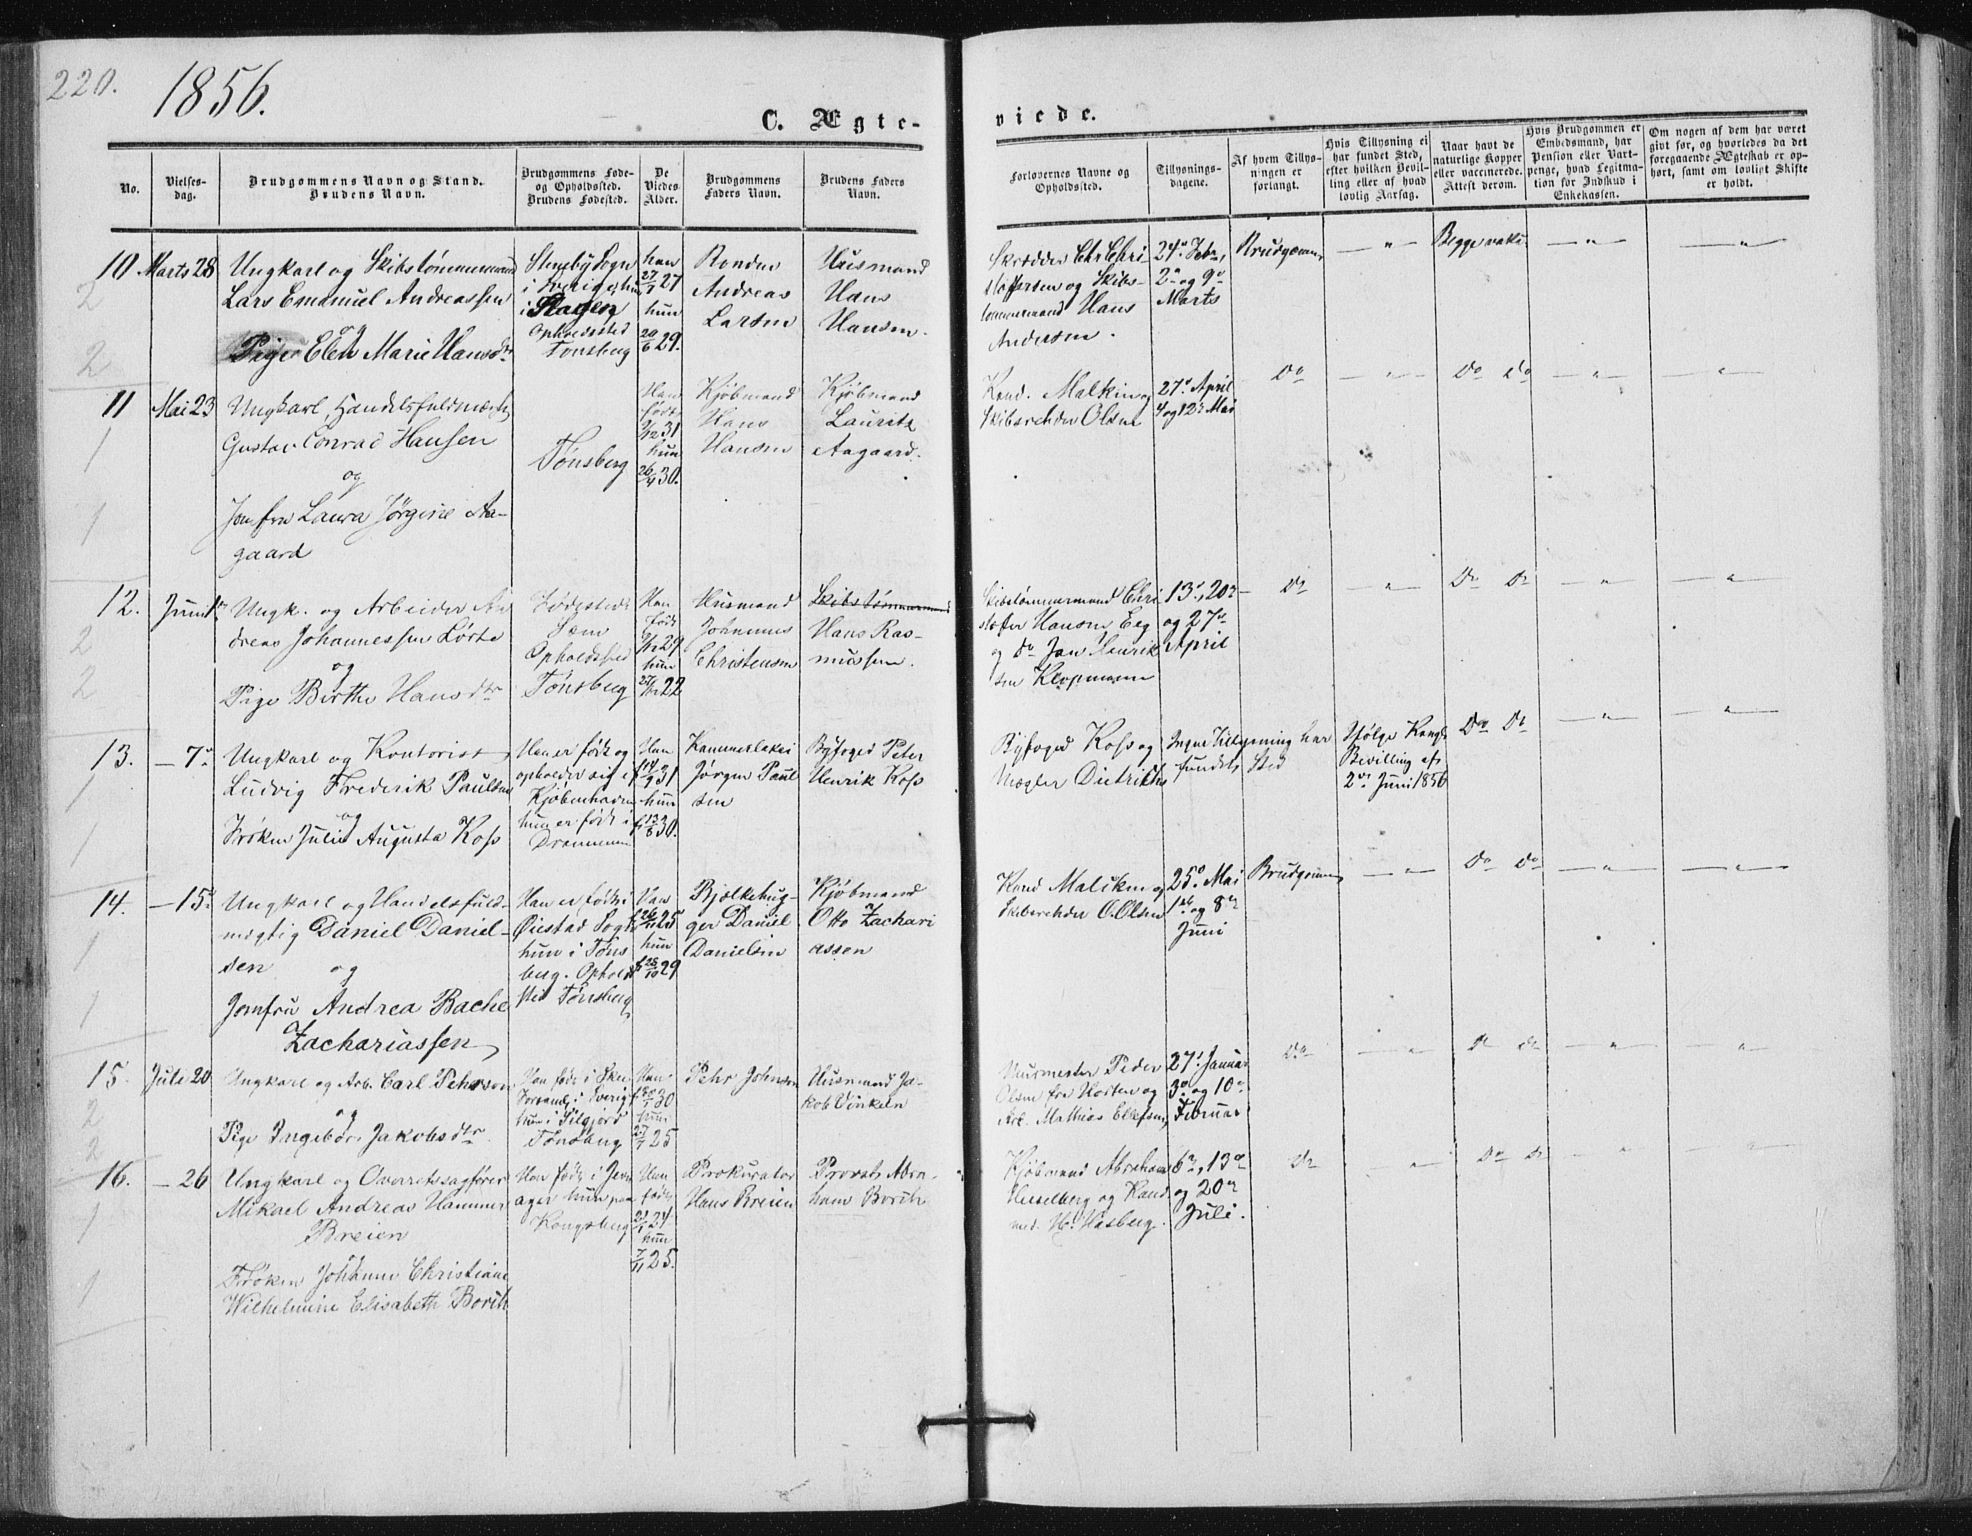 220.
1856.
C. Ægte-
viede.
No.
Vielses-
dag.
Brudgommens Navn og Stand.
Brudens Navn.
Brudgommens Føde-
og Opholdssted.
Brudens Fødested.
De
Viedes
Alder.
Brudgommens
Faders Navn.
Brudens Faders
Navn.
Forlovernes Navne og
Opholdssted.
Tillysnings-
dagene.
Af hvem Tillys-
ningen er
forlangt.
Hvis Tillysning ei
har fundet Sted,
efter hvilken Bevil-
ling eller af hvad
lovlig Aarsag.
Naar havt de
naturlige Kopper
eller vaccinerede.
Attest derom.
Hvis Brudgommen er
Embedsmand, har
Pension eller Vart-
penge, hvad Legitima-
tion for Indskud i
Enkekassen.
Om nogen af dem har været
givt før, og hvorledes da det
foregaaende Ægteskab er op-
hørt, samt om lovligt Skifte
er holdt.
10 Marts 28
Ungkarl og Skibstømmermand
Lars Emanuel Andreassen
og
Pige Elen Marie Hansdtr
Steneby Sogn
i Sverige, hun
i Slagen
Opholdssted
Tønsberg
han
27/1 27
hun
29.
Bonden
Andreas
Larsen
Huusmand
Hans
Hansen.
Skrædder Chr. Chri
stoffersen og Skibs-
tømmermand Hans
Andersen.
24de Febr.,
2den og 9de
Marts
Brudgommen
— " —
Begge vakc.
— " —
— " —
11 Mai 23
Ungkarl, Handelsfuldmægtig
Gustav Conrad Hansen
og
Jomfru Laura Jørgine Aa-
gaard
Tønsberg
Han
født
31
hun
26/4 30.
Kjøbmand
Hans
Hansen
Kjøbmand
Lauritz
Aagaard.
Kand. Malkin og
Skibsreder Olsen
27de April
4 og 12te Mai
Do
— " —
Do Do
— " —
— " —
12. Juni 1ste
Ungk. og Arbeider An
dreas Johannessen Lørte
og
Pige Birthe Hansdtr
Fødested
Sem
Opholdssted
Tønsberg
Han
født
29
hun
22
Husmand
Johannes
Christensen
Skibstømmermand
Hans Ras-
mussen.
Skibstømmermand Chri
stoffer Hansen Eeg
og do Jan Henrik
sen Klopmann
13de, 20de
og 27de
April
Do
— " —
Do Do
— " —
— " —
13. — 7de
Ungkarl og Kontorist
Ludvig Frederik Paulsen
og
Frøken Julie Augusta Koss
Han er født og
opholder sig i
Kjøbenhavn
hun er født i
Drammen
Han
31
hun
30.
Kammerlakei
Jørgen Paul
sen
Byfoged Peter
Henrik Koss
Byfoged Koss og
Mægler Diedrichs
Ingen Tillysning har
fundet Sted
Ifølge Kongl.
Bevilling af
2den Juni 1856
Do Do
— " —
— " —
14. — 15de
Ungkarl og Handelsfuld-
mægtig Daniel Daniel-
sen og
Jomfru Andrea Bache
Zachariassen
Han er født i
Øiestad Sogn
hun i Tøns
berg. Ophold
sted Tønsberg
Han
25
hun
29
Bjælkehug-
ger Daniel
Danielsen
Kjøbmand
Otto Zachari
assen
Kand Malkin og
Skibsreder O. Olsen
25de Mai
1ste og 8de
Juni
Brudgommen
— " —
Do Do
— " —
— " —
15. Juli 20
Ungkarl og Arb. Carl Pehrson
og
Pige Ingeborg Jakobsdtr
Han født i
i Sverig
hun i Siljord
Tønsberg
Han
30
hun
27/7 25
Pehr Johnson
Husmand Ja-
kob Vinkeln
Murmester Peder
Olsen fra Horten og
Arb. Mathias Ellefsen
27de Januar
3die og 10de
Februar
Do
— " —
Do Do
— " —
— " —
16. — 26
Ungkarl og Overretssagfører
Mikael Andreas Hammer
Breien
og
Frøken Johanne Christiane
Wilhelmine Elisabeth Borch
Han født i Jevn
ager hun paa
Kongsberg
Han
født
24
hun
7/11 25.
Prokurator
Hans Breien
Provst Abra-
ham Borch
Kjøbmand Abraham
Hesselberg og Kand.
med. H. Hasberg.
6te, 13de
og 20de
Juli.
Do
— " —
Do Do
— " —
— " —